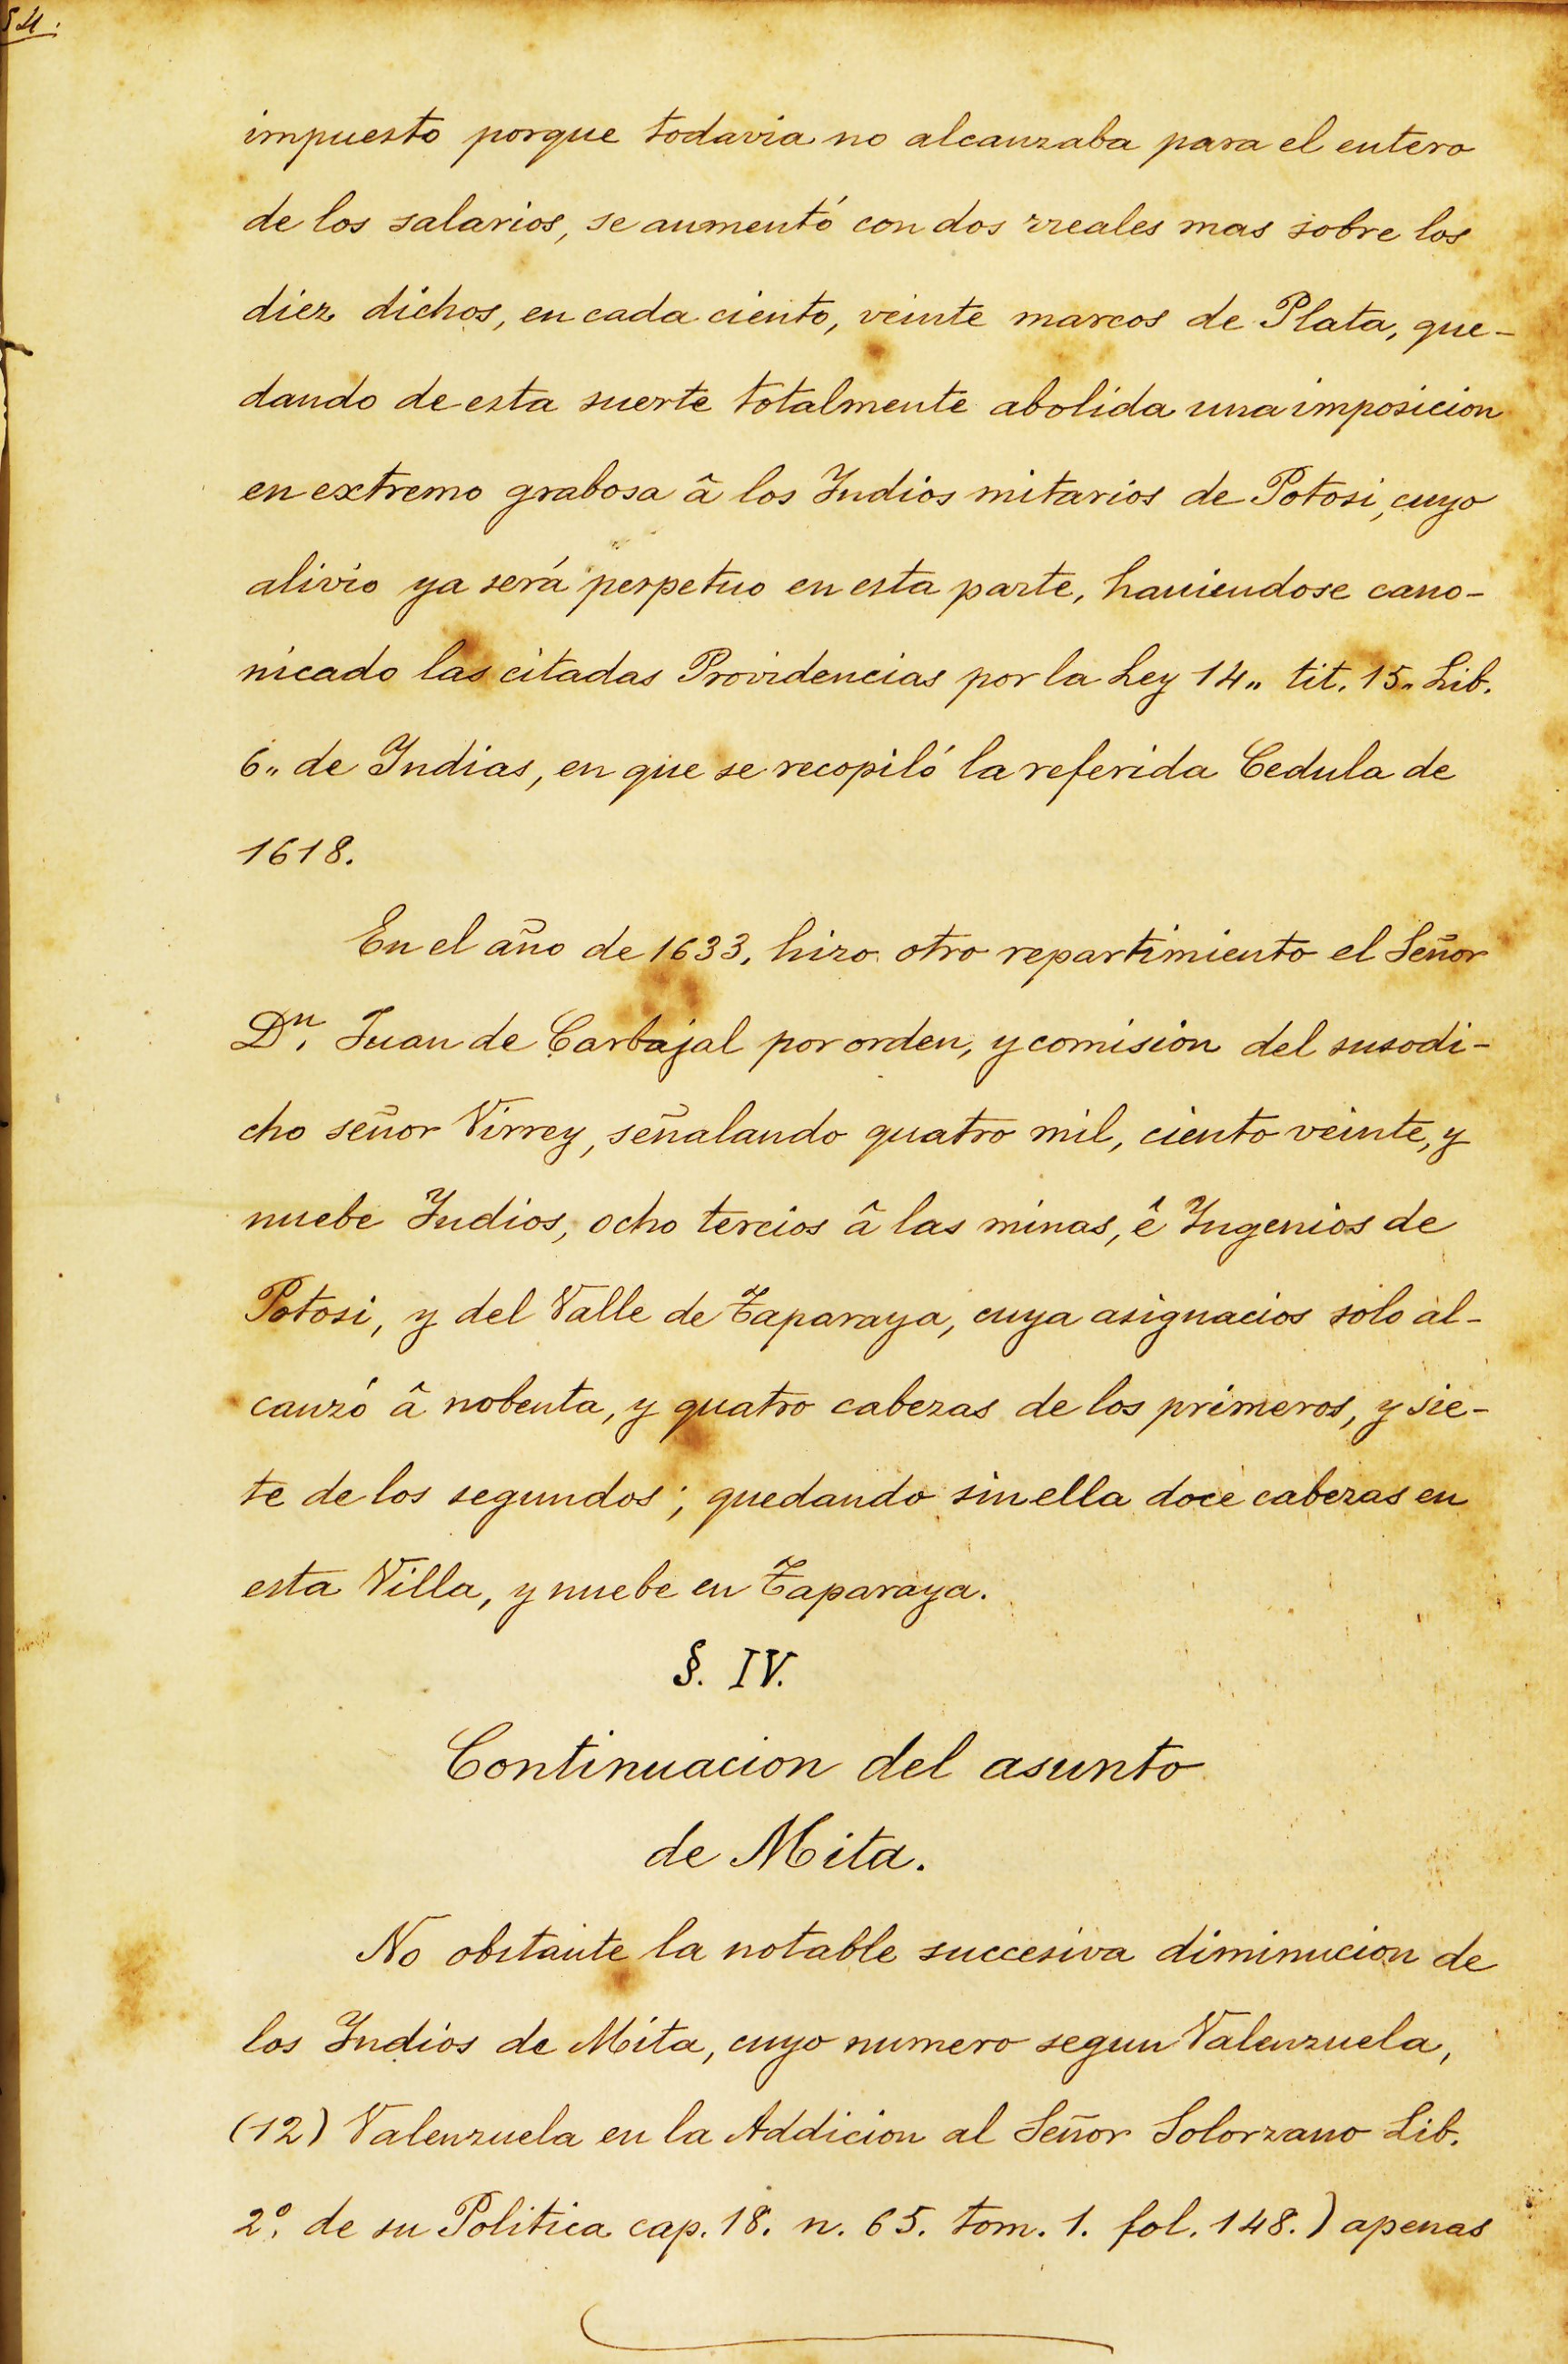 54.
impuesto porque todavia no alcanzaba para el entero
de los salarios, se aumentó con dos rreales mas sobre los
diez dichos, en cada ciento, veinte marcos de Plata, que-
dando de esta suerte totalmente abolida una imposicion
en extremo grabosa â los Indios mitarios de Potosi, cuyo
alivio ya será perpetuo en esta parte, haviendose cano-
nicado las citadas Providencias por la Ley 14,, tit. 15,, Lib.
6,, de Indias, en que se recopiló la referida Cedula de
1618.
En el año de 1633, hizo otro repartimiento el Señor
Dn. Juan de Carbajal por orden, y comision del susodi-
cho señor Virrey, señalando quatro mil, ciento veinte, y
nuebe Indios, ocho tercios â las minas, ê Ingenios de
Potosi, y del Valle de Taparaya, cuya asignacios solo al-
canzó â nobenta, y quatro cabezas de los primeros, y sie-
te de los segundos; quedando sin ella doce cabezas en
esta Villa, y nuebe en Taparaya.
§. IV.
Continuacion del asunto
de Mita.
No obstante la notable succesiva diminucion de
los Indios de Mita, cuyo numero segun Valenzuela,
(12) Valenzuela en la Addicion al Señor Solorzano Lib.
2º. de su Politica cap. 18. n. 65. tom. 1. fol. 148.) apenas